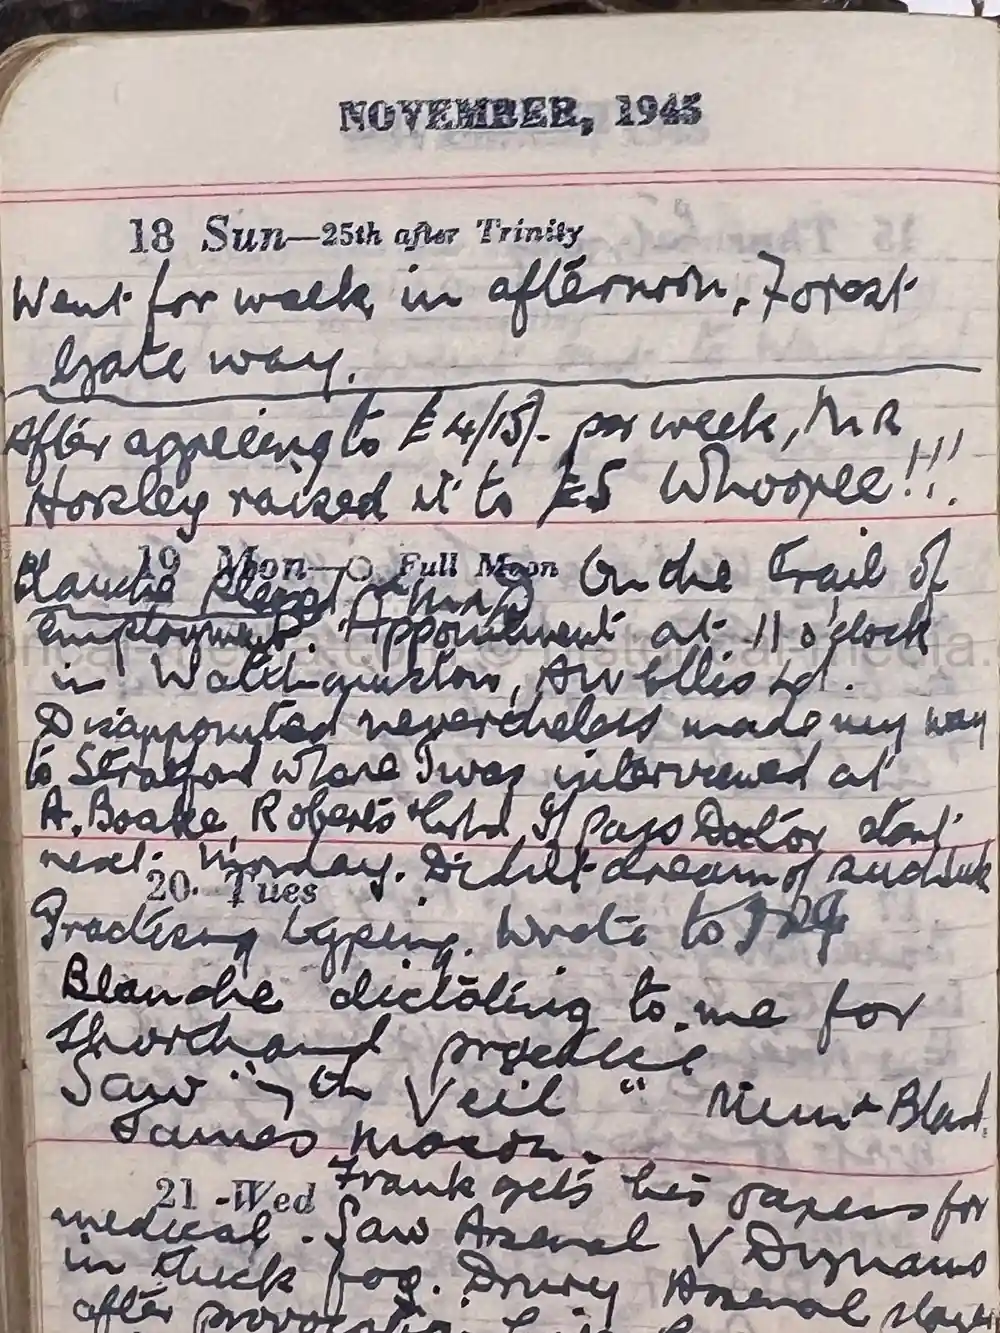 NOVEMBER, 1945
18 Sun—25th after Trinity
Went for walk in afternoon, Forest
Gate way.
After agreeing to £4/15/- per week, Mr
Horsley raised it to £5 Whoopee!!!
19 Mon—○ Full Moon
Blanche On the trail of
employment. Appointment at 11 o'clock
in Walthamstow, AW Ellis Ltd.
Disappointed nevertheless made my way
to Stratford where I was interviewed at
A. Boake, Roberts & Co Ltd. If pass Doctor start
next Monday. Didn't dream of such luck
20 Tues
Practising typing. Wrote to
Blanche dictating to me for
Shorthand practice
Saw "7th Veil" Mum & Blanch.
James Mason.
21 -Wed
Frank gets his papers for
medical. Saw Arsenal V Dynamo
in thick fog. Drury Arsenal
after